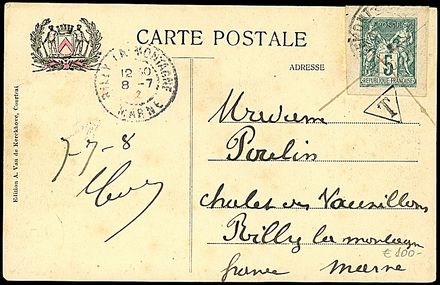 CARTE POSTALE
ADRESSE
RILLY LA MONTAGNE
12 30
8 -7
MARNE
POSTES
5
REPUBLIQUE FRANÇAISE
T
Edition A. Van de Kerckhove, Courtrai
7-7-8
Madame
Poulin
chalet des Vausillons
Rilly la montagne
france Marne
€ 100-